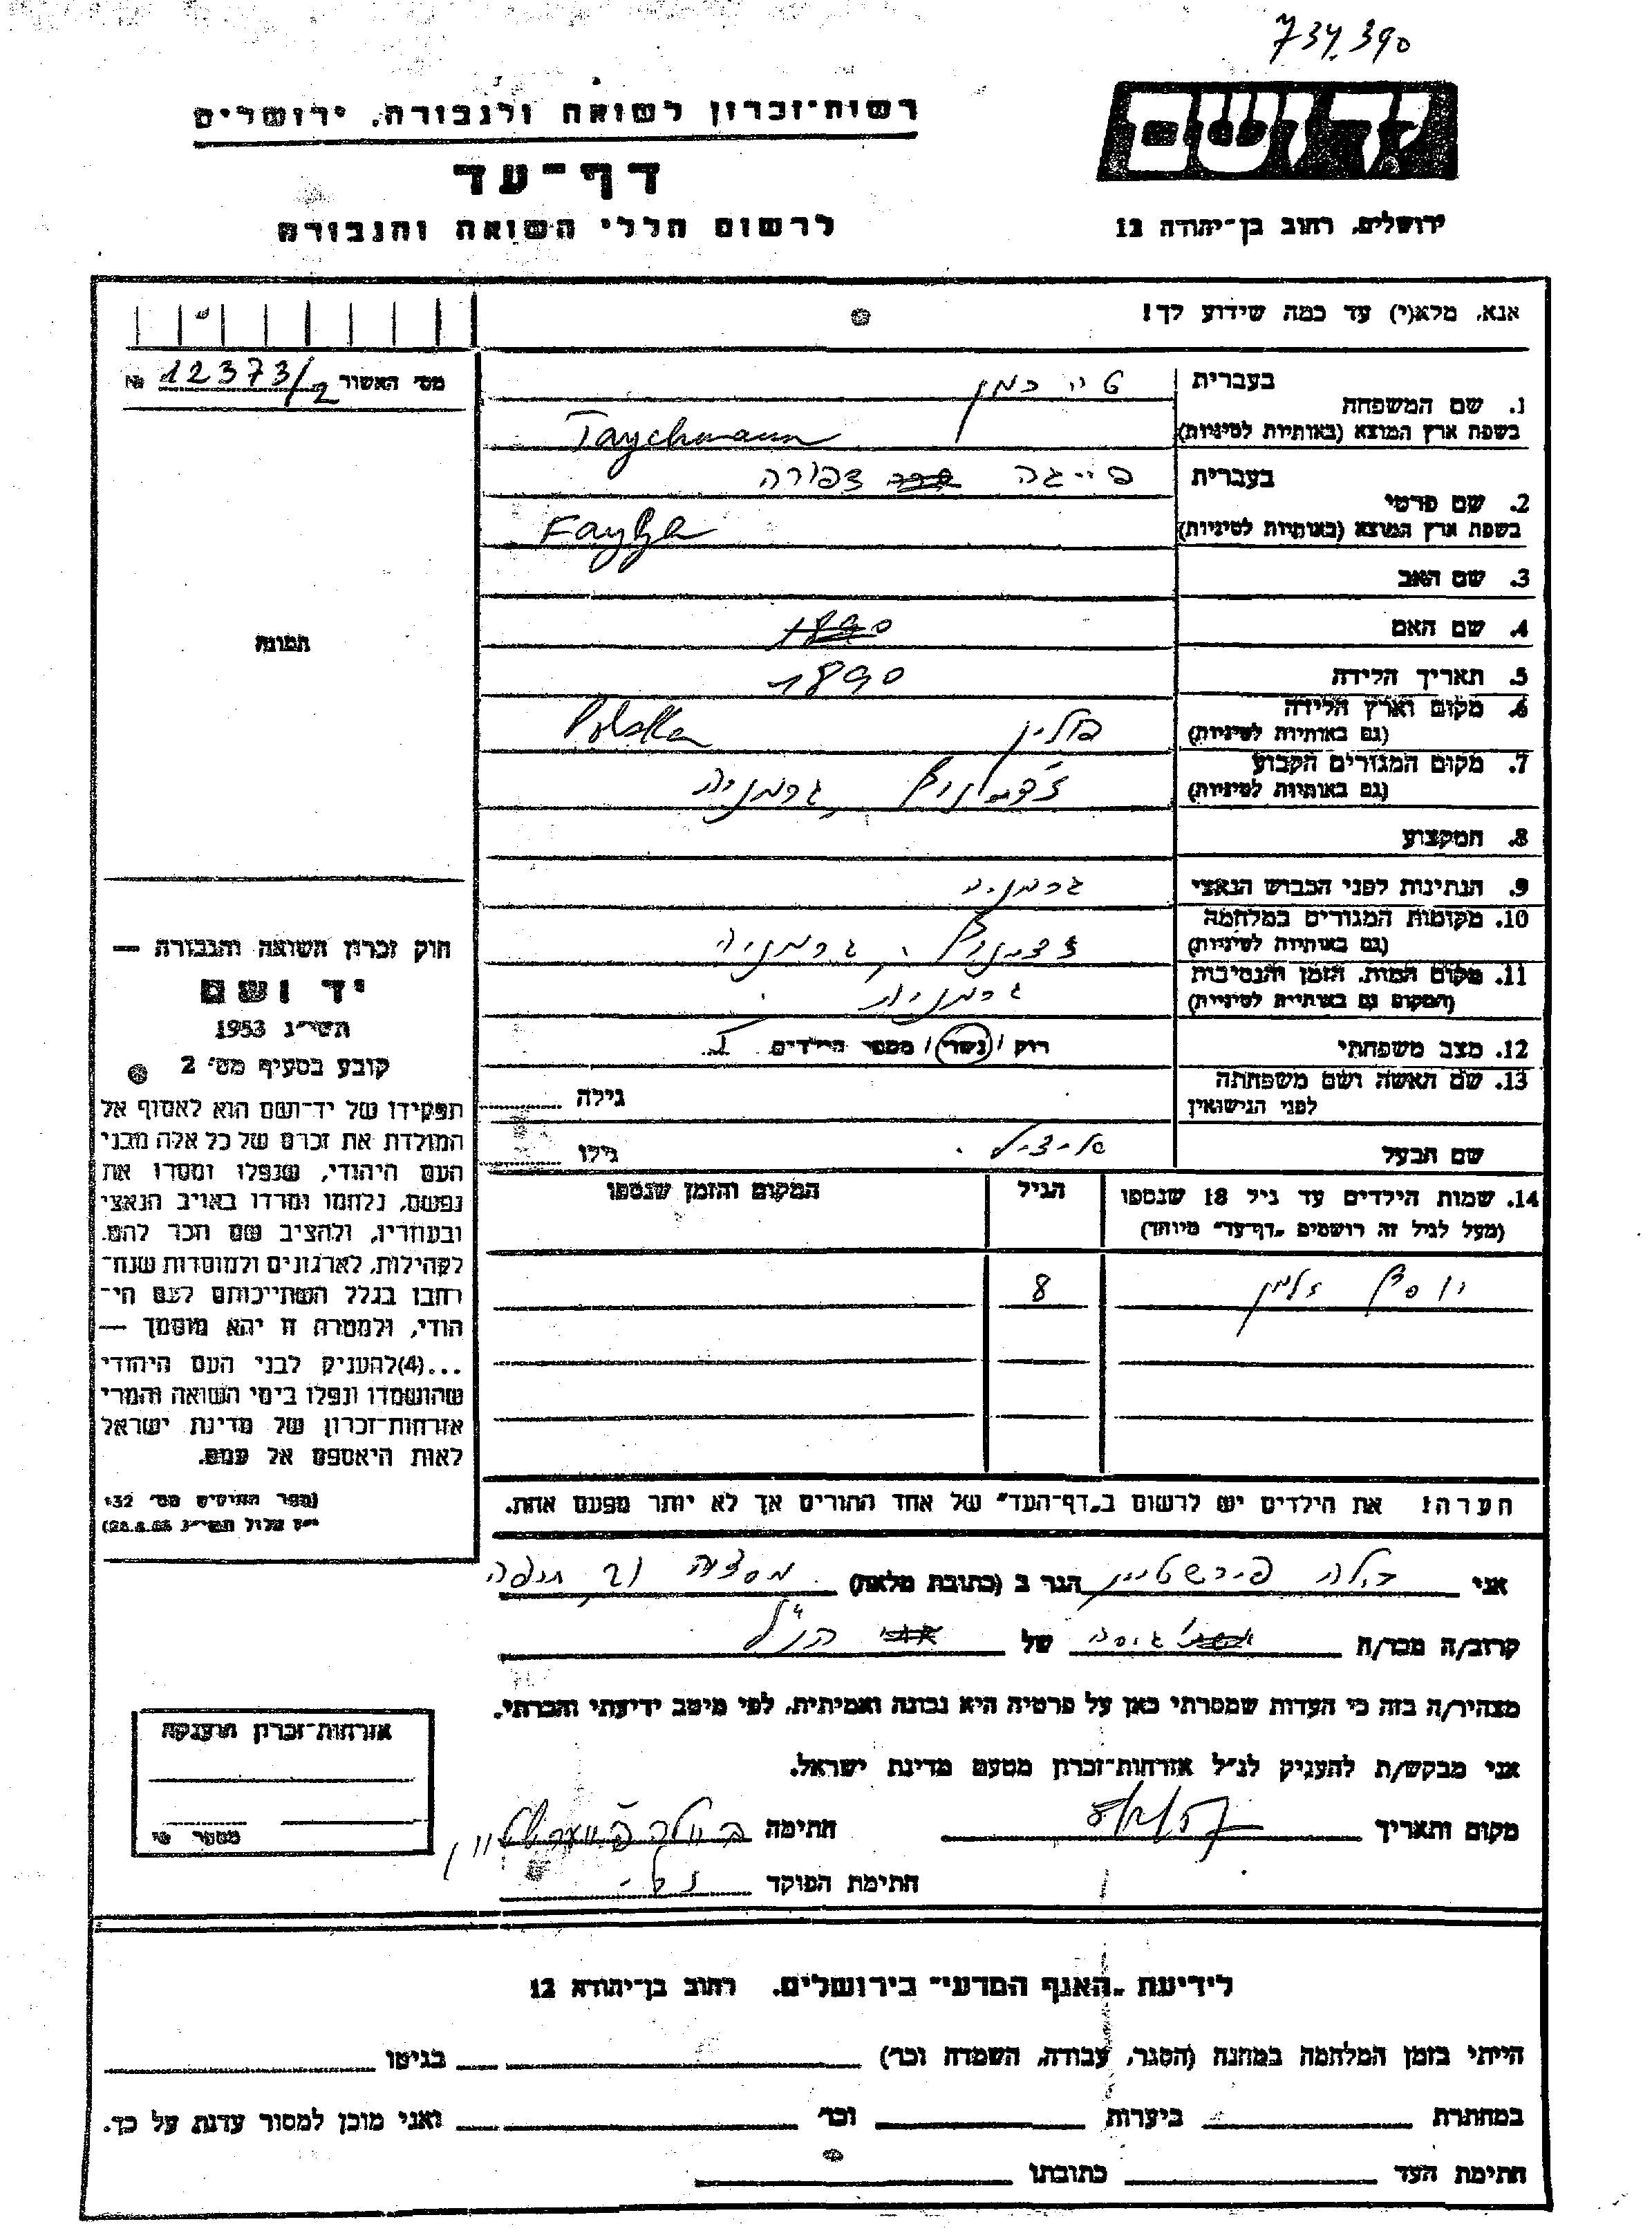 734.390
רשות־זכרון לשואה ולגבורה, ירושלים
יד ושם
דף־עד
לרשום חללי השואה והגבורה
ירושלים, רחוב בן־יהודה 12
אנא, מלא(י) עד כמה שידוע לך!
מס׳ האשור 12373/2 №
בעברית טייכמן
1. שם המשפחה
בשפת ארץ המוצא (באותיות לטיניות) Taychmann
בעברית פייגה צפורה
2. שם פרטי
בשפת ארץ המוצא (באותיות לטיניות) Fayga
3. שם האב
4. שם האם 1890
5. תאריך הלידה 1890
6. מקום וארץ הלידה פולין Polska
(גם באותיות לטיניות)
7. מקום המגורים הקבוע
(גם באותיות לטיניות) גרמניה
8. המקצוע
9. הנתינות לפני הכבוש הנאצי גרמניה
10. מקומות המגורים במלחמה
(גם באותיות לטיניות) גרמניה
11. מקום המות, הזמן והנסיבות
(המקום גם באותיות לטיניות) גרמניה
12. מצב משפחתי רוק / נשוי / מספר הילדים
13. שם האשה ושם משפחתה
לפני הנישואין גילה
שם הבעל אייזיק גילו
14. שמות הילדים עד גיל 18 שנספו הגיל המקום והזמן שנספו
(מעל לגיל זה רושמים „דף־עד״ מיוחד)
יוסף זלמן 8
הערה! את הילדים יש לרשום ב„דף־העד״ של אחד ההורים אך לא יותר מפעם אחת.
תמונה
חוק זכרון השואה והגבורה —
יד ושם
תשי״ג 1953
קובע בסעיף מס׳ 2
תפקידו של יד־ושם הוא לאסוף אל
המולדת את זכרם של כל אלה מבני
העם היהודי, שנפלו ומסרו את
נפשם, נלחמו ומרדו באויב הנאצי
ובעוזריו, ולהציב שם וזכר להם,
לקהילות, לארגונים ולמוסדות שנח־
רבו בגלל השתייכותם לעם הי־
הודי, ולמטרה זו יהא מוסמך —
...(4)להעניק לבני העם היהודי
שהושמדו ונפלו בימי השואה והמרי
אזרחות־זכרון של מדינת ישראל
לאות היאספם אל עמם.
(ספר החוקים מס׳ 132
י״ז אלול תשי״ג 28.8.53)
אני בילה פיירשטיין הגר ב (כתובת מלאה) מסדה 21 חיפה
קרוב/ה מכר/ה גיסה של הנ״ל
מצהיר/ה בזה כי העדות שמסרתי כאן על פרטיה היא נכונה ואמיתית, לפי מיטב ידיעתי והכרתי.
אני מבקש/ת להעניק לנ״ל אזרחות־זכרון מטעם מדינת ישראל.
מקום ותאריך חתימה
חתימת הפוקד
אזרחות־זכרון הוענקה
מספר
לידיעת „האגף המדעי״ בירושלים, רחוב בן־יהודה 12
הייתי בזמן המלחמה במחנה (הסגר, עבודה, השמדה וכו׳) בגיטו
במחתרת ביערות וכו׳ ואני מוכן למסור עדות על כך.
חתימת העד כתובתו